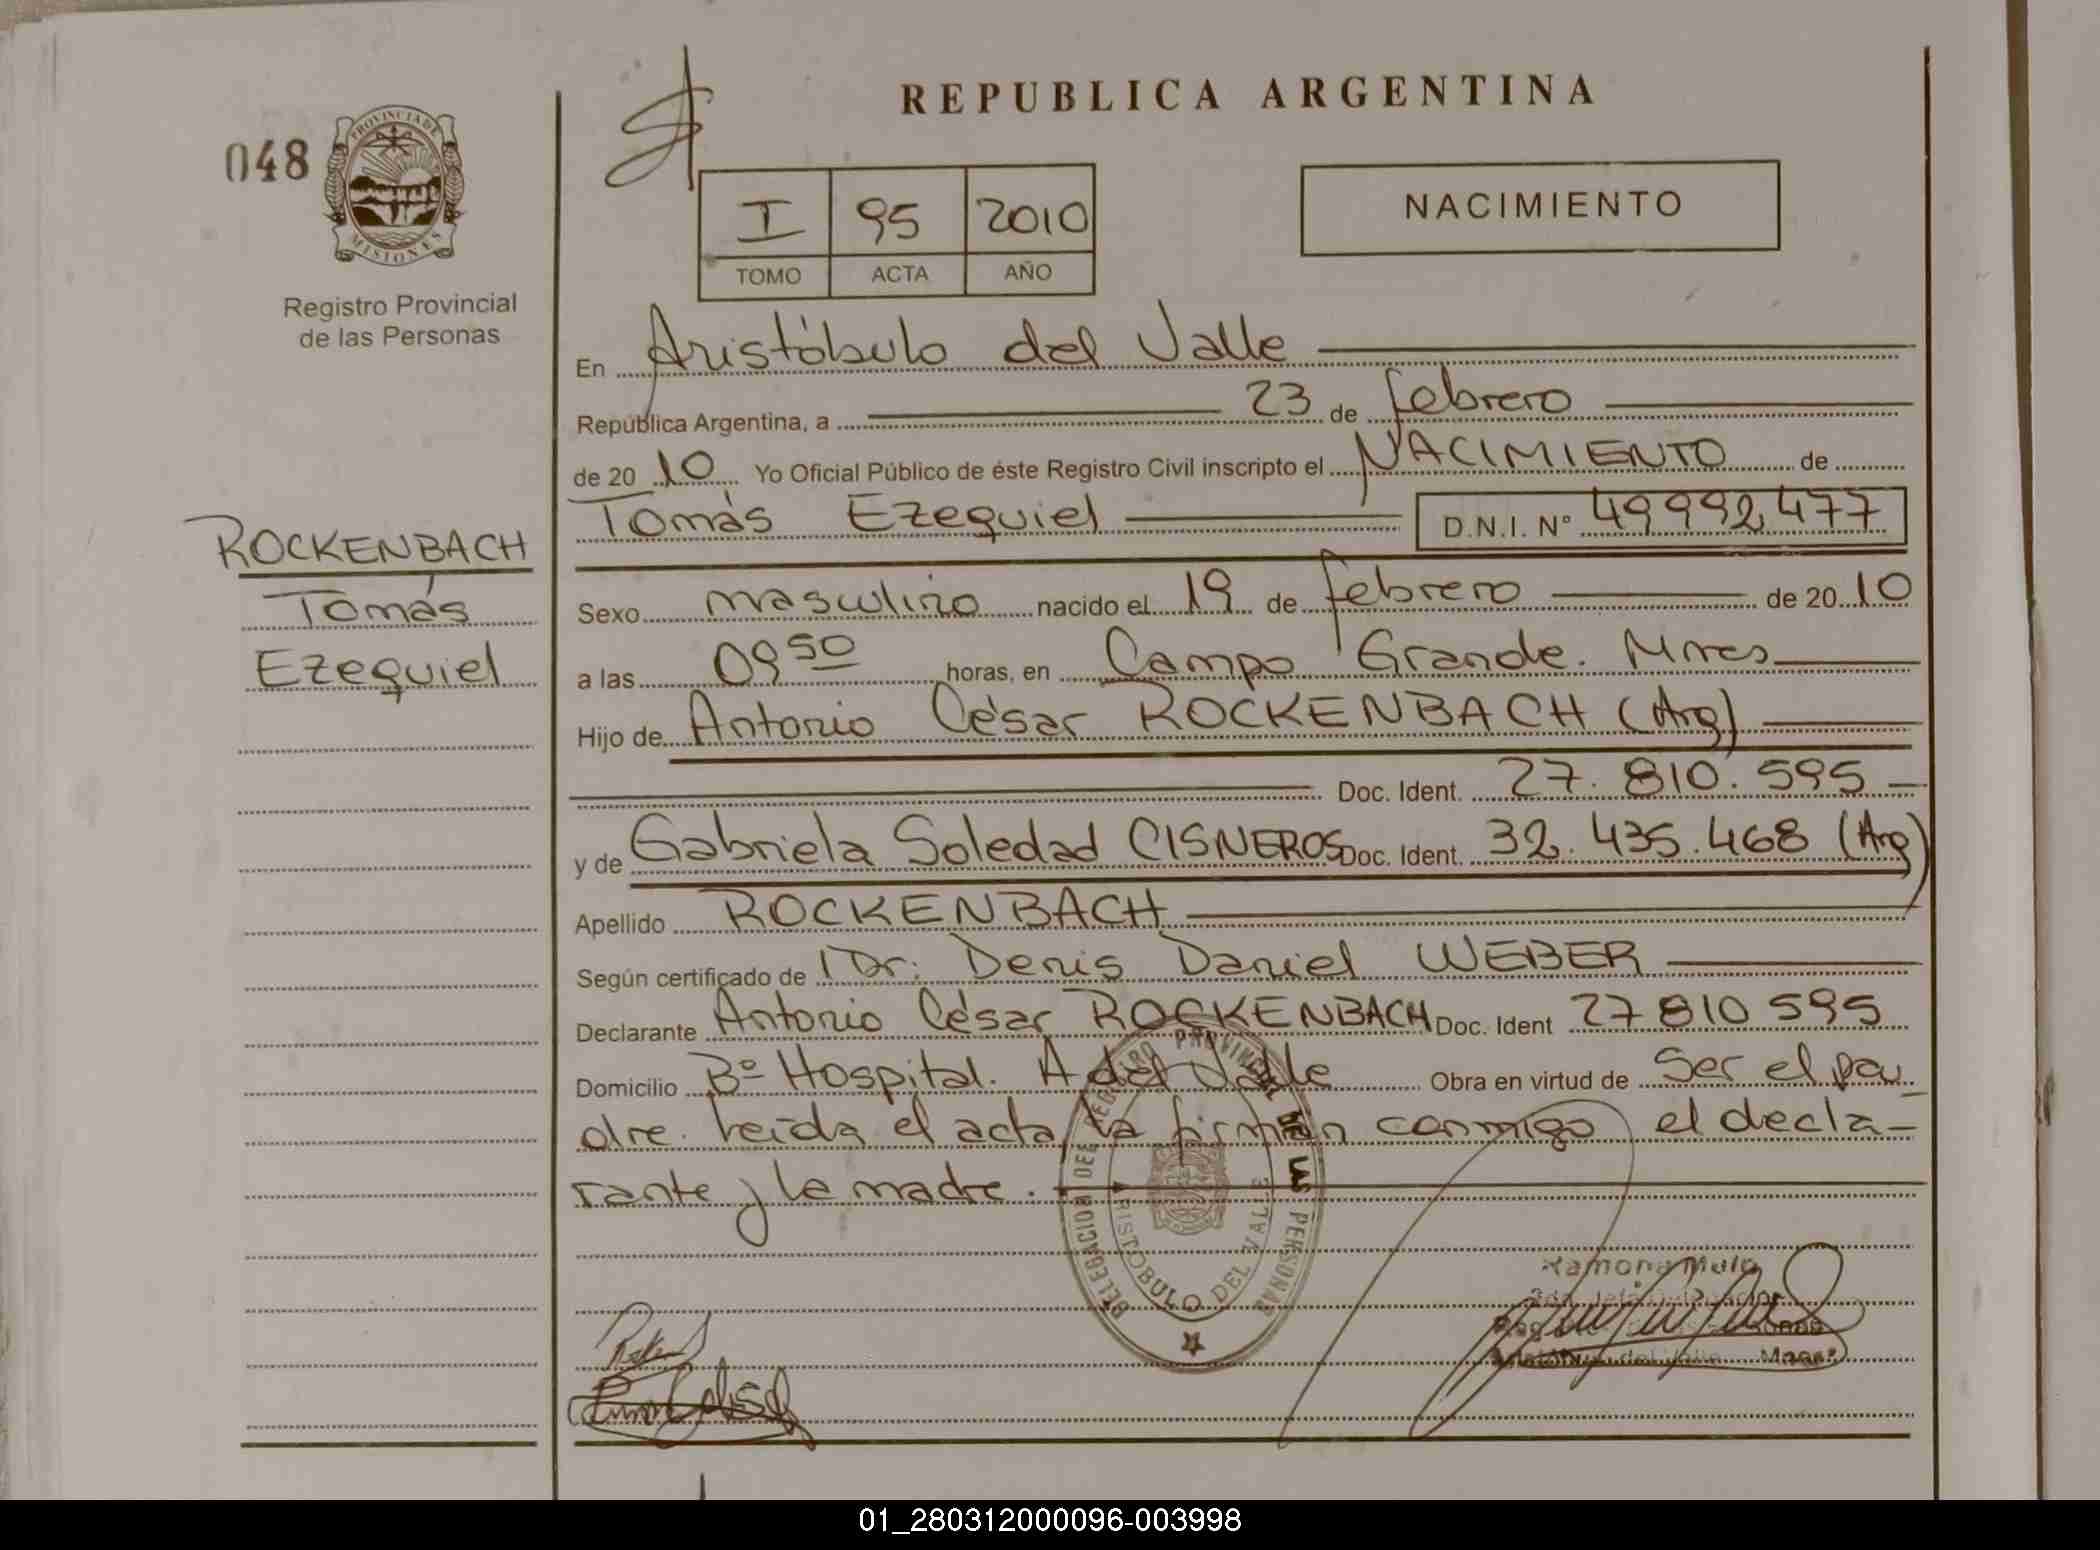 REPUBLICA ARGENTINA
048
PROVINCIA DE
MISIONES
Registro Provincial
de las Personas
I 95 2010
TOMO ACTA AÑO
NACIMIENTO
En Aristóbulo del Valle
República Argentina, a 23 de febrero
de 2010 Yo Oficial Público de éste Registro Civil inscripto el NACIMIENTO de
Tomás Ezequiel D.N.I. N° 49992477
ROCKENBACH
Tomás
Ezequiel
Sexo masculino nacido el 19 de febrero de 2010
a las 09 50 horas, en Campo Grande. Mnes
Hijo de Antonio César ROCKENBACH (Arg)
Doc. Ident. 27.810.595
y de Gabriela Soledad CISNEROS Doc. Ident. 32.435.468 (Arg)
Apellido ROCKENBACH
Según certificado de Dr. Denis Daniel WEBER
Declarante Antonio César ROCKENBACH Doc. Ident 27810595
Domicilio Bº Hospital. A del Valle Obra en virtud de Ser el pa
dre. Leída el acta, la firman conmigo el decla-
rante y la madre.
DELEGACION DEL REGISTRO PROVINCIAL DE LAS PERSONAS
ARISTOBULO DEL VALLE
Ramona
01_280312000096-003998